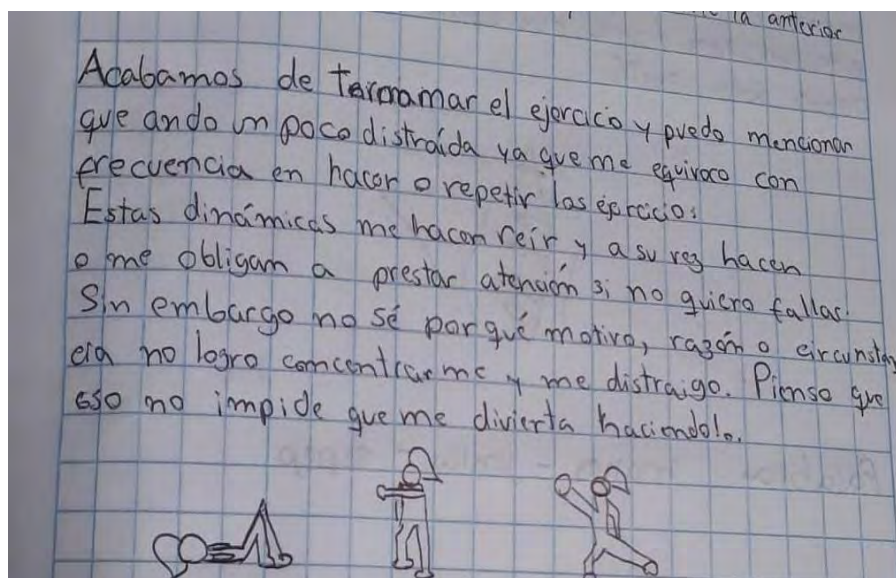 la anterior
Acabamos de terminar el ejercicio y puedo mencionar
que ando un poco distraída ya que me equivoco con
frecuencia en hacer o repetir los ejercicio.
Estas dinámicas me hacen reír y a su vez hacen
o me obligan a prestar atención si no quiero fallas.
Sin embargo no sé porqué motivo, razón o circunstan
cia no logro concentrarme y me distraigo. Pienso que
eso no impide que me divierta haciendolo.